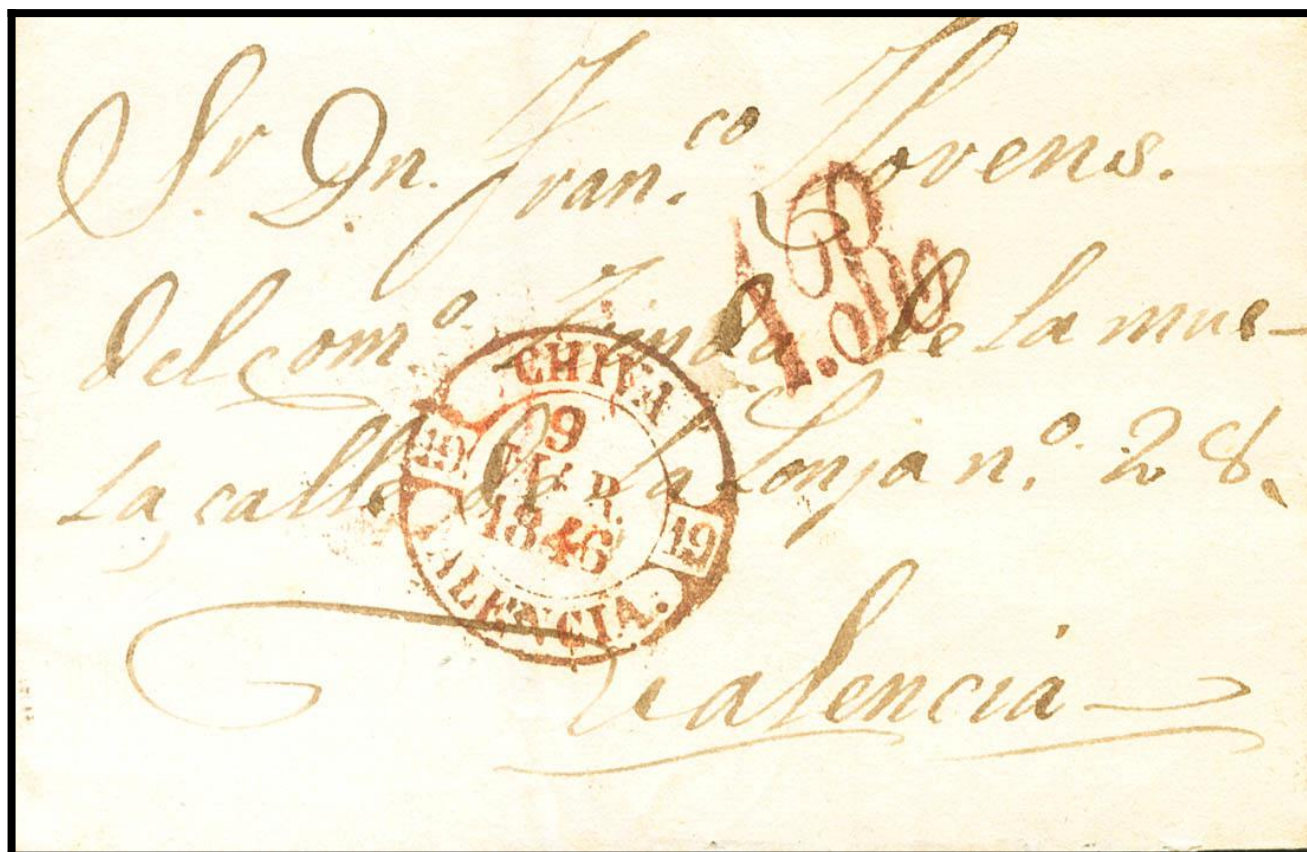 Sr. Dn. Fran.co Llorens.
del com.o Tienda de la mue-
La calle de la Lonja n.o 28.
Valencia
1.R
CHIVA
19
9
MAR.
1846
19
VALENCIA.